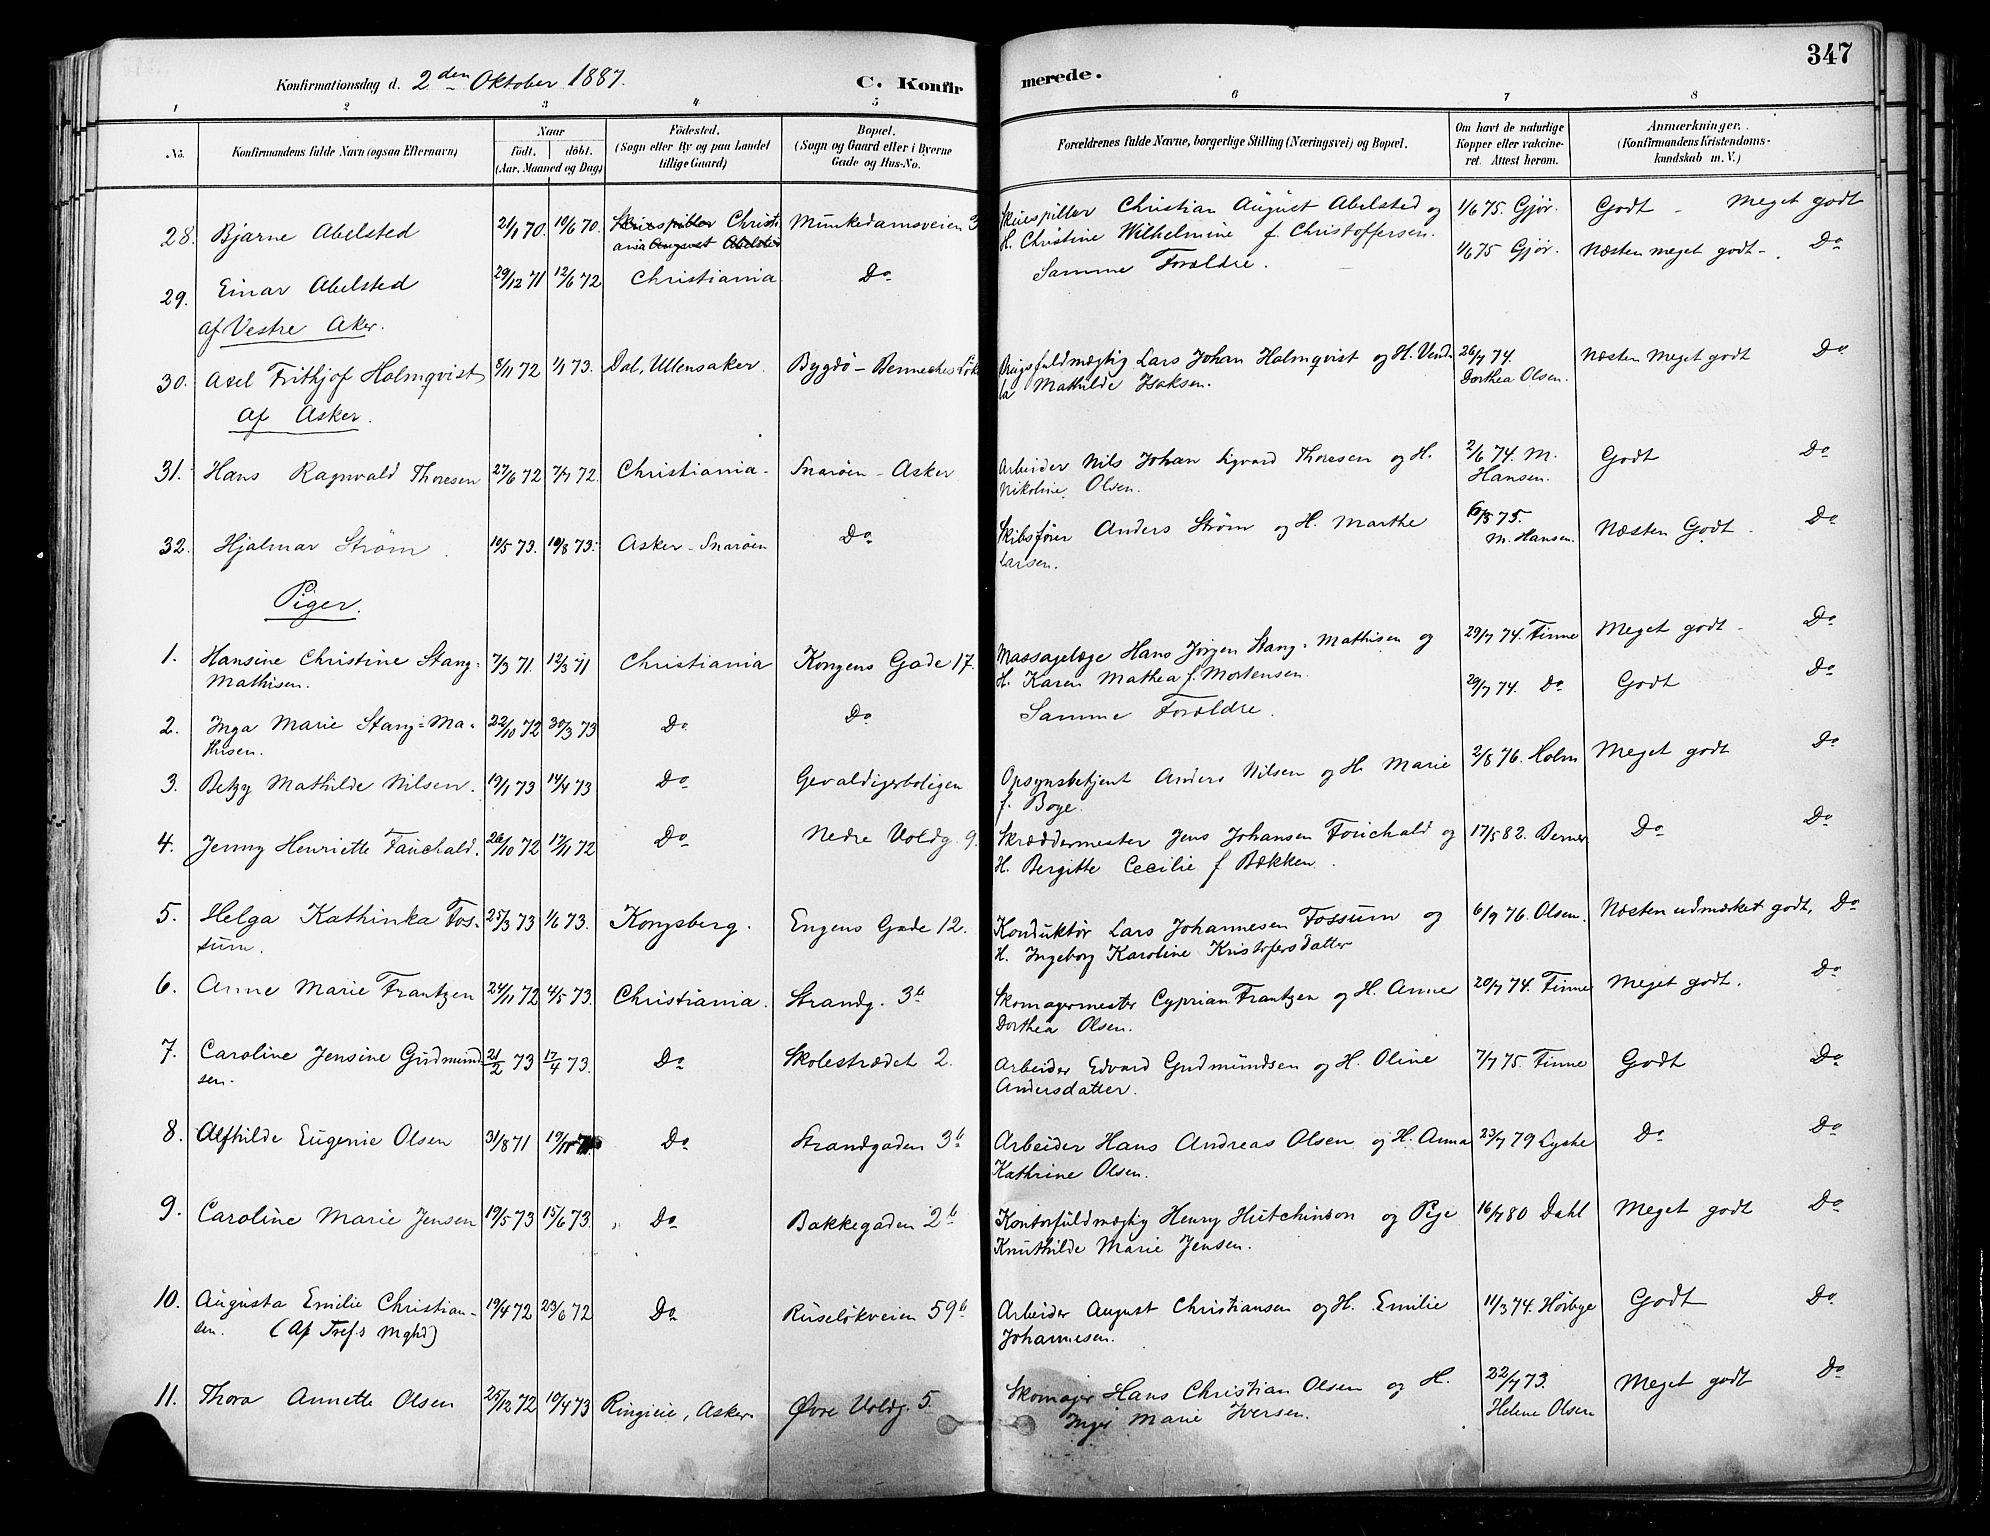 347
Konfirmationsdag d. 2den Oktober 1887. C. Konfirmerede.
1 2 3 4 5 6 7 8
No. Konfirmandens fulde Navn (ogsaa Efternavn) Naar födt. döbt. (Aar, Maaned og Dag) Födested. (Sogn eller By og paa Landet tillige Gaard) Bopæl. (Sogn og Gaard eller i Byerne Gade og Hus-No. Forældrenes fulde Navne, borgerlige Stilling (Næringsvei) og Bopæl. Om havt de naturlige Kopper eller vakcineret. Attest herom. Anmærkninger. (Konfirmandens Kristendomskundskab m. V.)
28. Bjarne Abelsted 2/1 70 10/6 70. Skuespiller Christiania August Abelsted Munkedamsveien 3 Skuespiller Christian August Abelsted og
H. Christine Wilhelmine f. Christoffersen. 1/6 75. Gjør. Godt - Meget godt
29. Einar Abelsted 29/12 71 12/6 72 Christiania Do Samme Forældre. 1/6 75 Gjør. Næsten meget godt - Do
af Vestre Aker.
30. Axel Frithjof Holmqvist 8/11 72 1/1 73. Dal, Ullensaker. Bygdö - Bennechesløk Brugsfuldmægtig Lars Johan Holmqvist og H. Vendla
Mathilde Isaksen. 26/7 74. Dorthea Olsen. Næsten meget godt Do
af Asker.
31. Hans Ragnvald Thoresen 27/6 72 7/7 72 Christiania - Snarøen - Asker Arbeider Nils Johan Sigvard Thoresen og H.
Nikoline Olsen. 2/6 74. M. Hansen. Godt Do
32. Hjalmar Strøm 10/5 73. 10/8 73. Asker - Snarøen Do Skibsfører Anders Strøm og H. Marthe
Larsen. 6/8 75. M. Hansen. Næsten Godt - Do
Piger.
1. Hansine Christine Stang=
Mathisen. 7/3 71 12/3 71 Christiania Kongens Gade 17. Massagelæge Hans Jørgen Stang=Mathisen og
H. Karen Mathea f. Mortensen. 29/7 74. Finne Meget godt - Do
2. Inga Marie Stang=Ma-
thisen. 22/10 72 30/3 73 Do Do Samme Forældre. 29/7 74. Do Godt Do
3. Betzy Mathilde Nilsen. 19/1 73 14/4 73 Do Gevaldigerboligen Opsynsbetjent Anders Nilsen og H. Marie
f. Boye. 2/8 76. Holm Meget godt Do
4. Jenny Henriette Fauchald. 26/10 72 17/11 72 Do Nedre Voldg. 9. Skræddermester Jens Johansen Fouchald og
H. Bergitte Cecilie f Bækken. 17/5 82. Berner Do Do
5. Helga Kathinka Fos-
sum. 25/3 73 1/6 73. Kongsberg. Engens Gade 12. Konduktør Lars Johannesen Fossum og
H. Ingeborg Karoline Kristofersdatter 6/9 76. Olsen. Næsten udmærket godt, Do
6. Anne Marie Frantzen 24/11 72 4/5 73. Christiania. Strandg. 3b Skomagermester Cyprian Frantzen og H. Anne
Dorthea Olsen. 20/7 74. Finne Meget godt. Do
7. Caroline Jensine Gudmund
sen. 21/2 73 17/4 73. Do Skolestrædet 2. Arbeider Edvard Gudmundsen og H. Oline
Andersdatter. 7/7 75. Finne Godt Do
8. Alfhilde Eugenie Olsen 31/8 71 19/11 71 Do Strandgaden 3b Arbeider Hans Andreas Olsen og H. Anna
Kathrine Olsen. 23/7 79 Lyshe Do Do
9. Caroline Marie Jensen 19/5 73 15/6 73. Do Bakkegaden 2b Kontorfuldmægtig Henry Hutchinson og Pige
Knuthilde Marie Jensen. 16/7 80 Dahl Meget godt Do
10. Augusta Emilie Christian-
sen. (Af Tref.s Mghd) 19/4 72 23/6 72 Do Ruseløkveien 59b Arbeider August Christiansen og H. Emilie
Johannesen. 11/3 74. Hørbye Godt Do
11. Thora Annette Olsen 25/12 72 10/4 73 Ringieie, Asker. Øvre Voldg. 5. Skomager Hans Christian Olsen og H.
Inger Marie Iversen. 22/7 73. Helene Olsen Meget godt Do